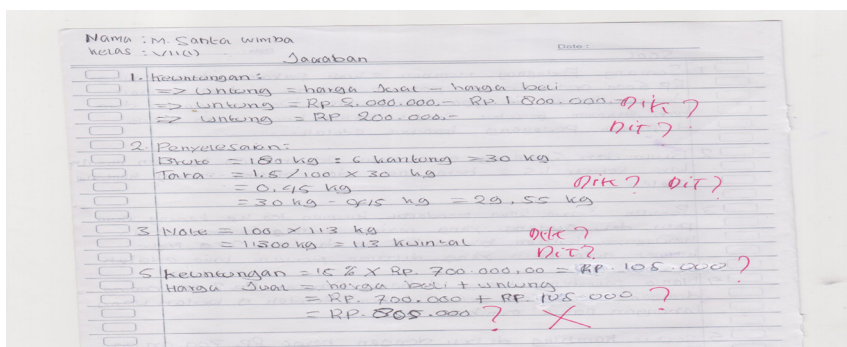 Nama : M. Santa Wimba
Kelas : VII(1)
Date :
Jawaban
1. Keuntungan :
=> Untung = harga Jual - harga beli
=> Untung = Rp 2.000.000.- Rp 1.800.000 Dik ?
=> Untung = RP 200.000.-
Dit ?
2. Penyelesaian:
Bruto = 180 kg : 6 kantung = 30 kg
Tara = 1.5/100 x 30 kg
= 0,45 kg Dik ? Dit ?
= 30 kg - 0,45 kg = 29,55 kg
3 Neto = 100 x 113 kg Dik ?
= 11300 kg = 113 kwintal
Dit ?
5 Keuntungan = 15 % x Rp. 700.000,00 = RP. 105.000 ?
Harga Jual = harga beli + untung
= RP. 700.000 + RP. 105.000 ?
= RP. 805.000 ? X